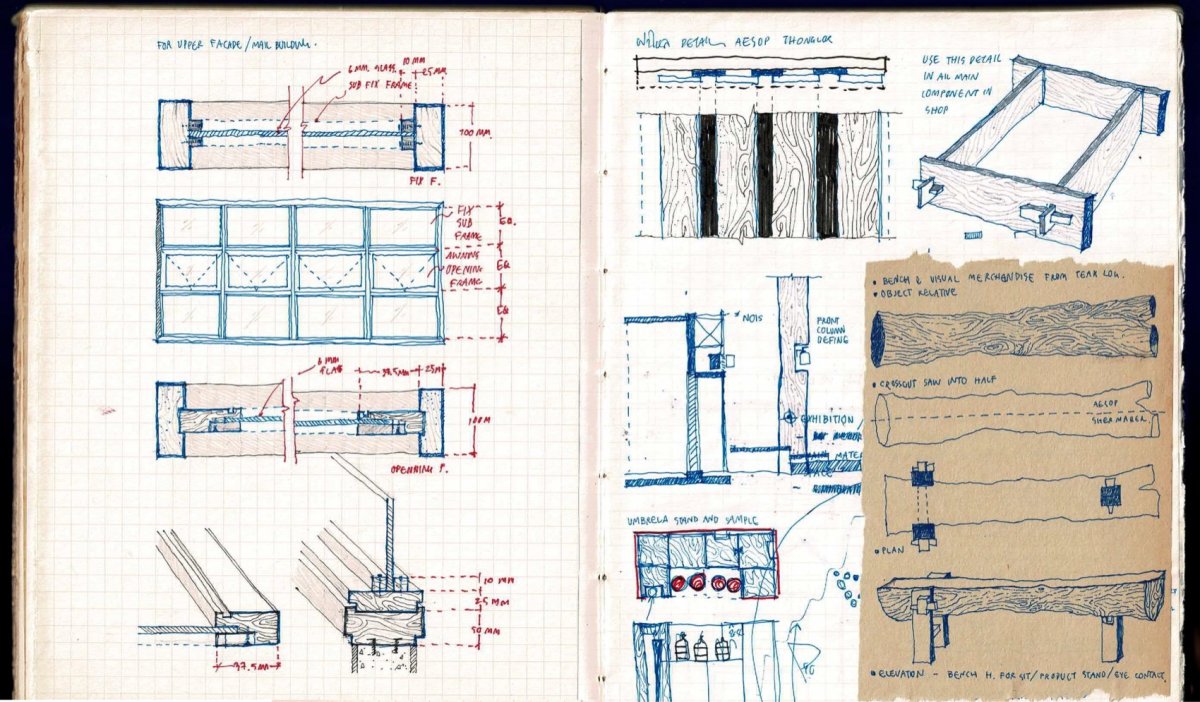 FOR UPPER FACADE/MAIL BUILDING.
6 MM GLASS.
SUB FIX FRAME
10 MM
25 MM
100 MM.
FIX F.
FIX
SUB
FRAME
AWNING
OPENING
FRAME
EQ.
EQ
EQ
6 MM
GLASS
37.5 MM
25 M
100 M
OPENNING F.
10 MM
25 MM
50 MM
37.5 MM
DETAIL AESOP THONGLOR
USE THIS DETAIL
IN ALL MAIN
COMPONENT IN
SHOP
* NOIS
FRONT
COLUMN
DEFING
EXHIBITION /
SPACE
UMBRELA STAND AND SAMPLE
• BENCH & VISUAL MERCHANDISE FROM TEAK LOG.
• OBJECT RELATIVE
• CROSSCUT SAW INTO HALF
AESOP
• PLAN
• ELEVATON - BENCH H. FOR SIT/PRODUCT STAND/EYE CONTACT.